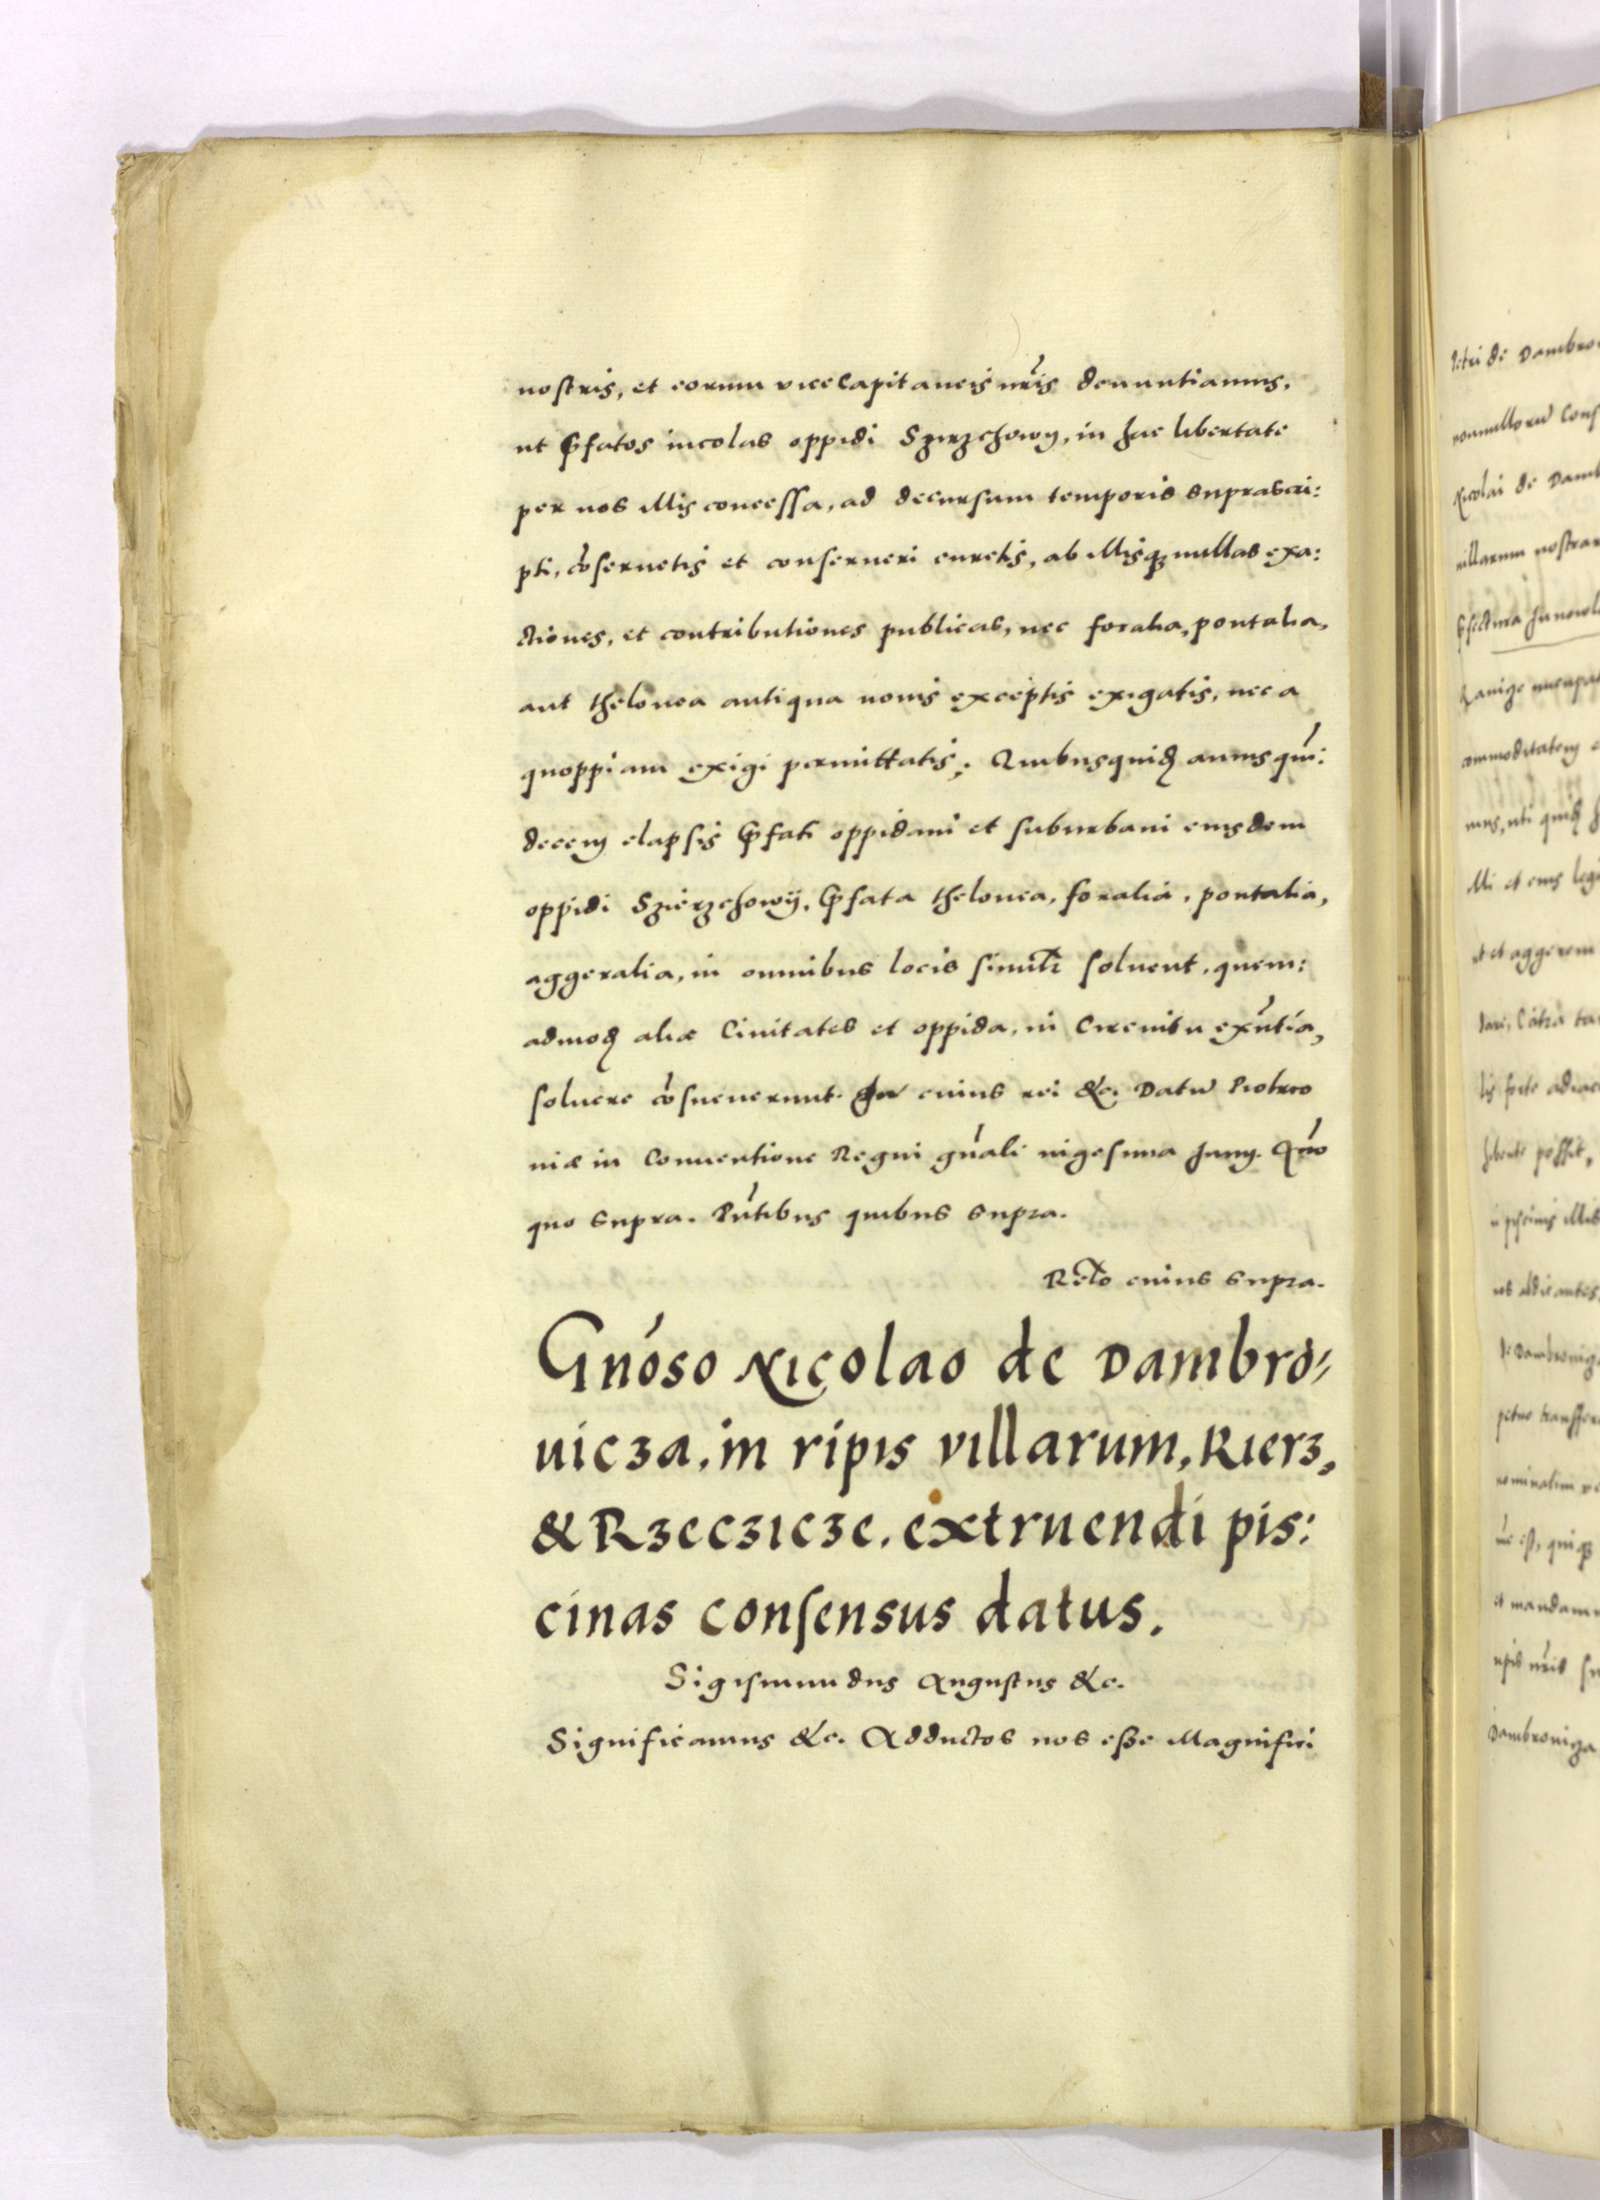 nostris, et eorum vicecapitaneis nr̃is denuntiamus,
ut p̃fatos incolas oppidi Szirzchowÿ, in hac libertate
per nos illis concessa, ad decursum temporis suprascri:
pti, cõseruetis et conserueri curetis, ab illisqȝ nullas exa:
ctiones, et contributiones publicas, nec foralia, pontalia,
aut thelonea antiqua nouis exceptis exigatis, nec a
quoppiam exigi permittatis. Quibusquidȝ annis qui:
decem elapsis p̃fati oppidani et suburbani eiusdem
oppidi Szierzchowÿ, p̃fata thelonea, foralia, pontalia,
aggeralia, in omnibus locis simil̃r soluent, quem:
admodȝ aliæ Ciuitates et oppida, in Circuitu exñtia,
soluere cõsueuerunt. In cuius rei &c. Datũ Piotrco
uiæ in Conuentione Regni gñali uigesima Junij. Añõ
quo supra. Pñtibus quibus supra.
Rel̃o cuius supra.
Gnõso Nicolao de Dambro⸗
uicza, in ripis villarum, Kierz,
& Rzecziczе, extruendi pis:
cinas consensus datus.
Sigismundus Augustus &c.
Significamus &c. Adductos nos esse Magnifici
Petri de Dambro
nonnullorũ Cons
Nicolai de Damb
villarum nostrar
commoditatem
illi et eius legi
et et aggerem
possit,
in piscinis illis
de Dambrouicza
transfer
nominatim
et mandam
Dambrouicza